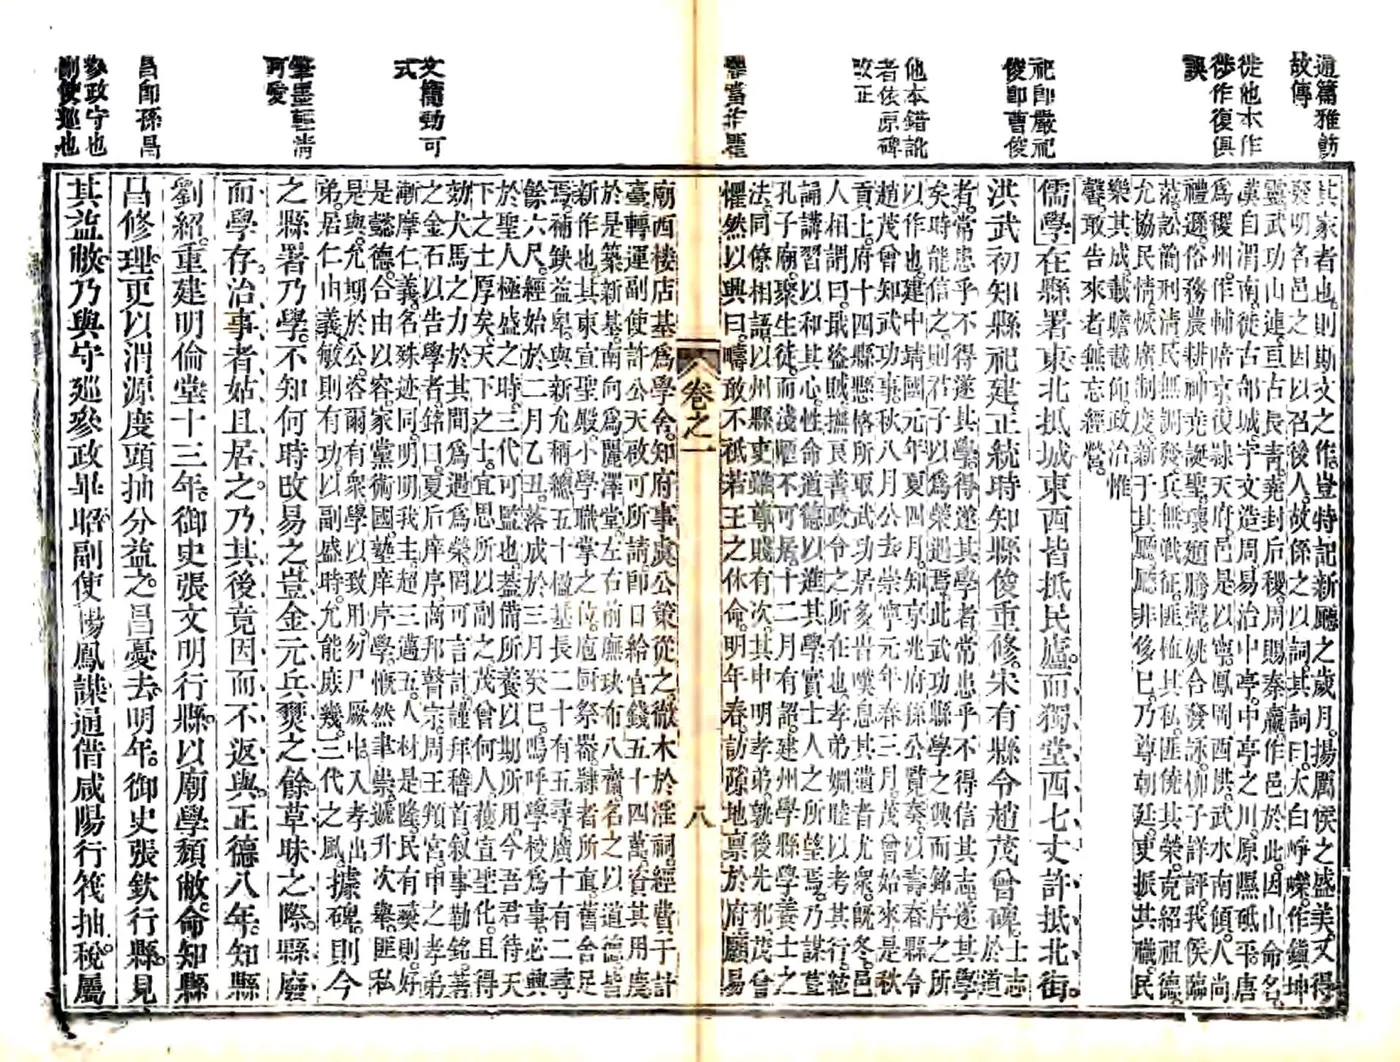 通篇雅飭
故傳
徙他本作
徏作復俱
誤
祀即嚴祀
俊即曹俊
他本錯訛
者依原碑
改正
文簡勁可
式
筆墨輕清
可愛
昌即孫昌
參政守也
副使巡也
其家者也則斯文之作豈特記新廳之歲月揚厲侯之盛美又得
賢明名邑之因以名後人故係之以詞其詞曰太白崢嶸作鎮坤
靈武功山連亘古長青堯封后稷周賜秦嬴作邑於此因山命名
漢自渭南徙古邰城宇文造周易治中亭中亭之川原隰砥平唐
為稷州作輔暗京復隸天府邑是以寧鳳岡西洪武水南傾人尚
禮遜俗務農耕神堯誕聖瓌廼騰聲姚合發詠柳子詳評我侯臨
蒞訟簡刑清氏無調發兵無戰征匪恤其私匪僥其榮克紹祖德
允協民情恢席制度新于其廳廳非侈巳乃尊朝廷吏振其職民
樂其成載瞻載仰政治惟
馨敢告來者無忘經營
儒學在縣署東北抵城東西皆抵民廬而獨堂西七丈許抵北街
洪武初知縣祀建正統時知縣俊重修宋有縣令趙茂曾碑士志於道
者常患乎不得遂其學得遂其學者常患乎不得信其志遂其學
矣時能信之則君子以為榮遇焉此武功縣學之興而銘序之所
以作也建中靖國元年夏四月知京兆府孫公覽奏以壽春縣令
趙茂曾知武功事秋八月公去崇寧元年春三月茂曾始來是秋
貢士府十四縣懸格所取武功居多皆嘆息其遺者尤眾既冬邑
人相謂曰戢盜賊撫良善政令之所在也孝弟婣睦以考其行絃
誦講習以和其心性命道德以進其學實士人之所望焉乃謀葺
孔子廟聚生徒而淺陋不可居十二月有詔建州學縣學養士之
法同僚相語以州縣吏雖尊賤有次其申明孝弟孰後先邪茂曾
懼然以興曰疇敢不祗若王之休命明年春訪隙地稟於府廳易
卷之一
八
廟西樓店基為學舍知府事虞公策從之徹木於淫祠經費于計
臺轉運副使許公天啟可所請即日給官錢五十四萬資其用度
於是築新基南向為麗澤堂左右前廡玦布八齋名之以道德皆
新作也其東宣聖殿小學職掌之位庖厨祭器隸者所直舊舍足
焉補缺益卑與新允稱總五十楹基長二十有五尋廣十有二尋
餘六尺經始於二月乙丑落成於三月癸巳嗚呼學校為事必興
於聖人極盛之時三代可監也蓋備所養以期所用今吾君待天
下之士厚矣天下之士宜思所以副之茂曾何人獲宣聖化且得
効犬馬之力於其間為遇為榮罔可言計謹拜稽首敘事勒銘著
之金石以告學者銘曰夏后庠序商邦瞽宗周王頖宮申之孝弟
漸摩仁義名殊迹同明明我主超三邁五人材是隆民有彝則好
是懿德合由以容家黨術國塾庠序學慨然聿崇遞升次舉匪私
是與允期於公咨爾有衆學以致用勿尸厥中入孝出
弟居仁由義敏則有功以副盛時允能庶幾三代之風據碑則今
之縣署乃學不知何時改易之豈金元兵燹之餘草昧之際縣廢
而學存治事者姑且居之乃其後竟因而不返與正德八年知縣
劉紹重建明倫堂十三年御史張文明行縣以廟學頹敝命知縣
昌修理更以渭源度項抽分益之昌憂去明年御史張欽行縣見
其益敝乃與守巡參政毕昭副使陽鳳謀通借咸陽行筏抽稅屬